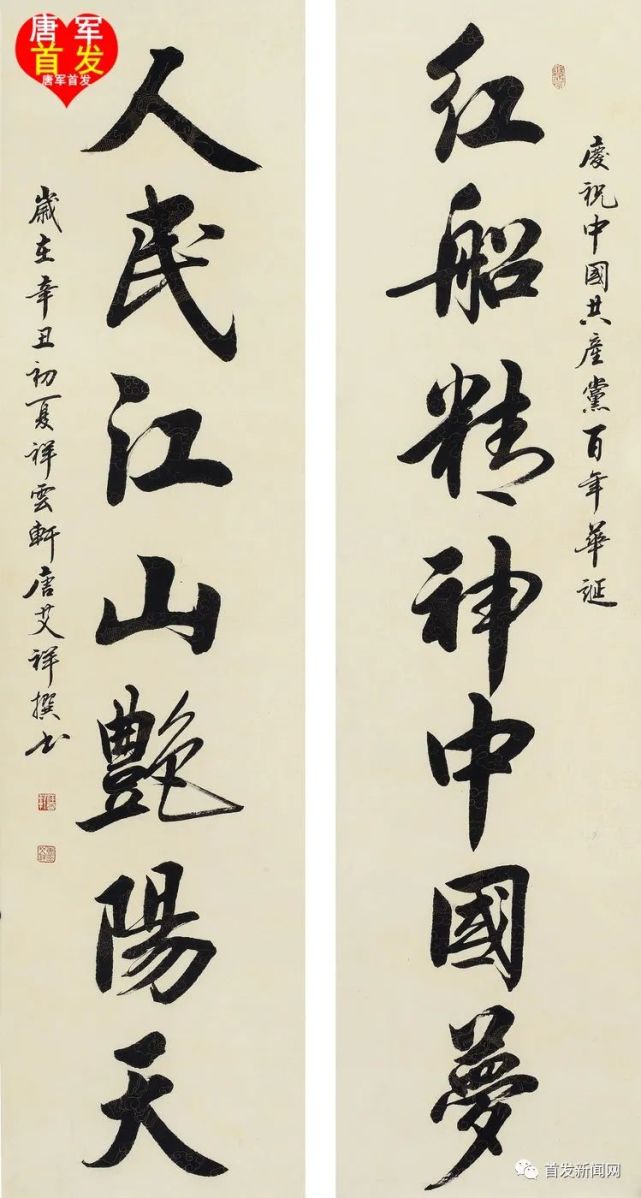 慶祝中國共產黨百年華誕
红船精神中國夢
人民江山艷陽天
歲在辛丑初夏祥雲軒唐艾祥撰书
唐军
首发
唐军首发
首发新闻网